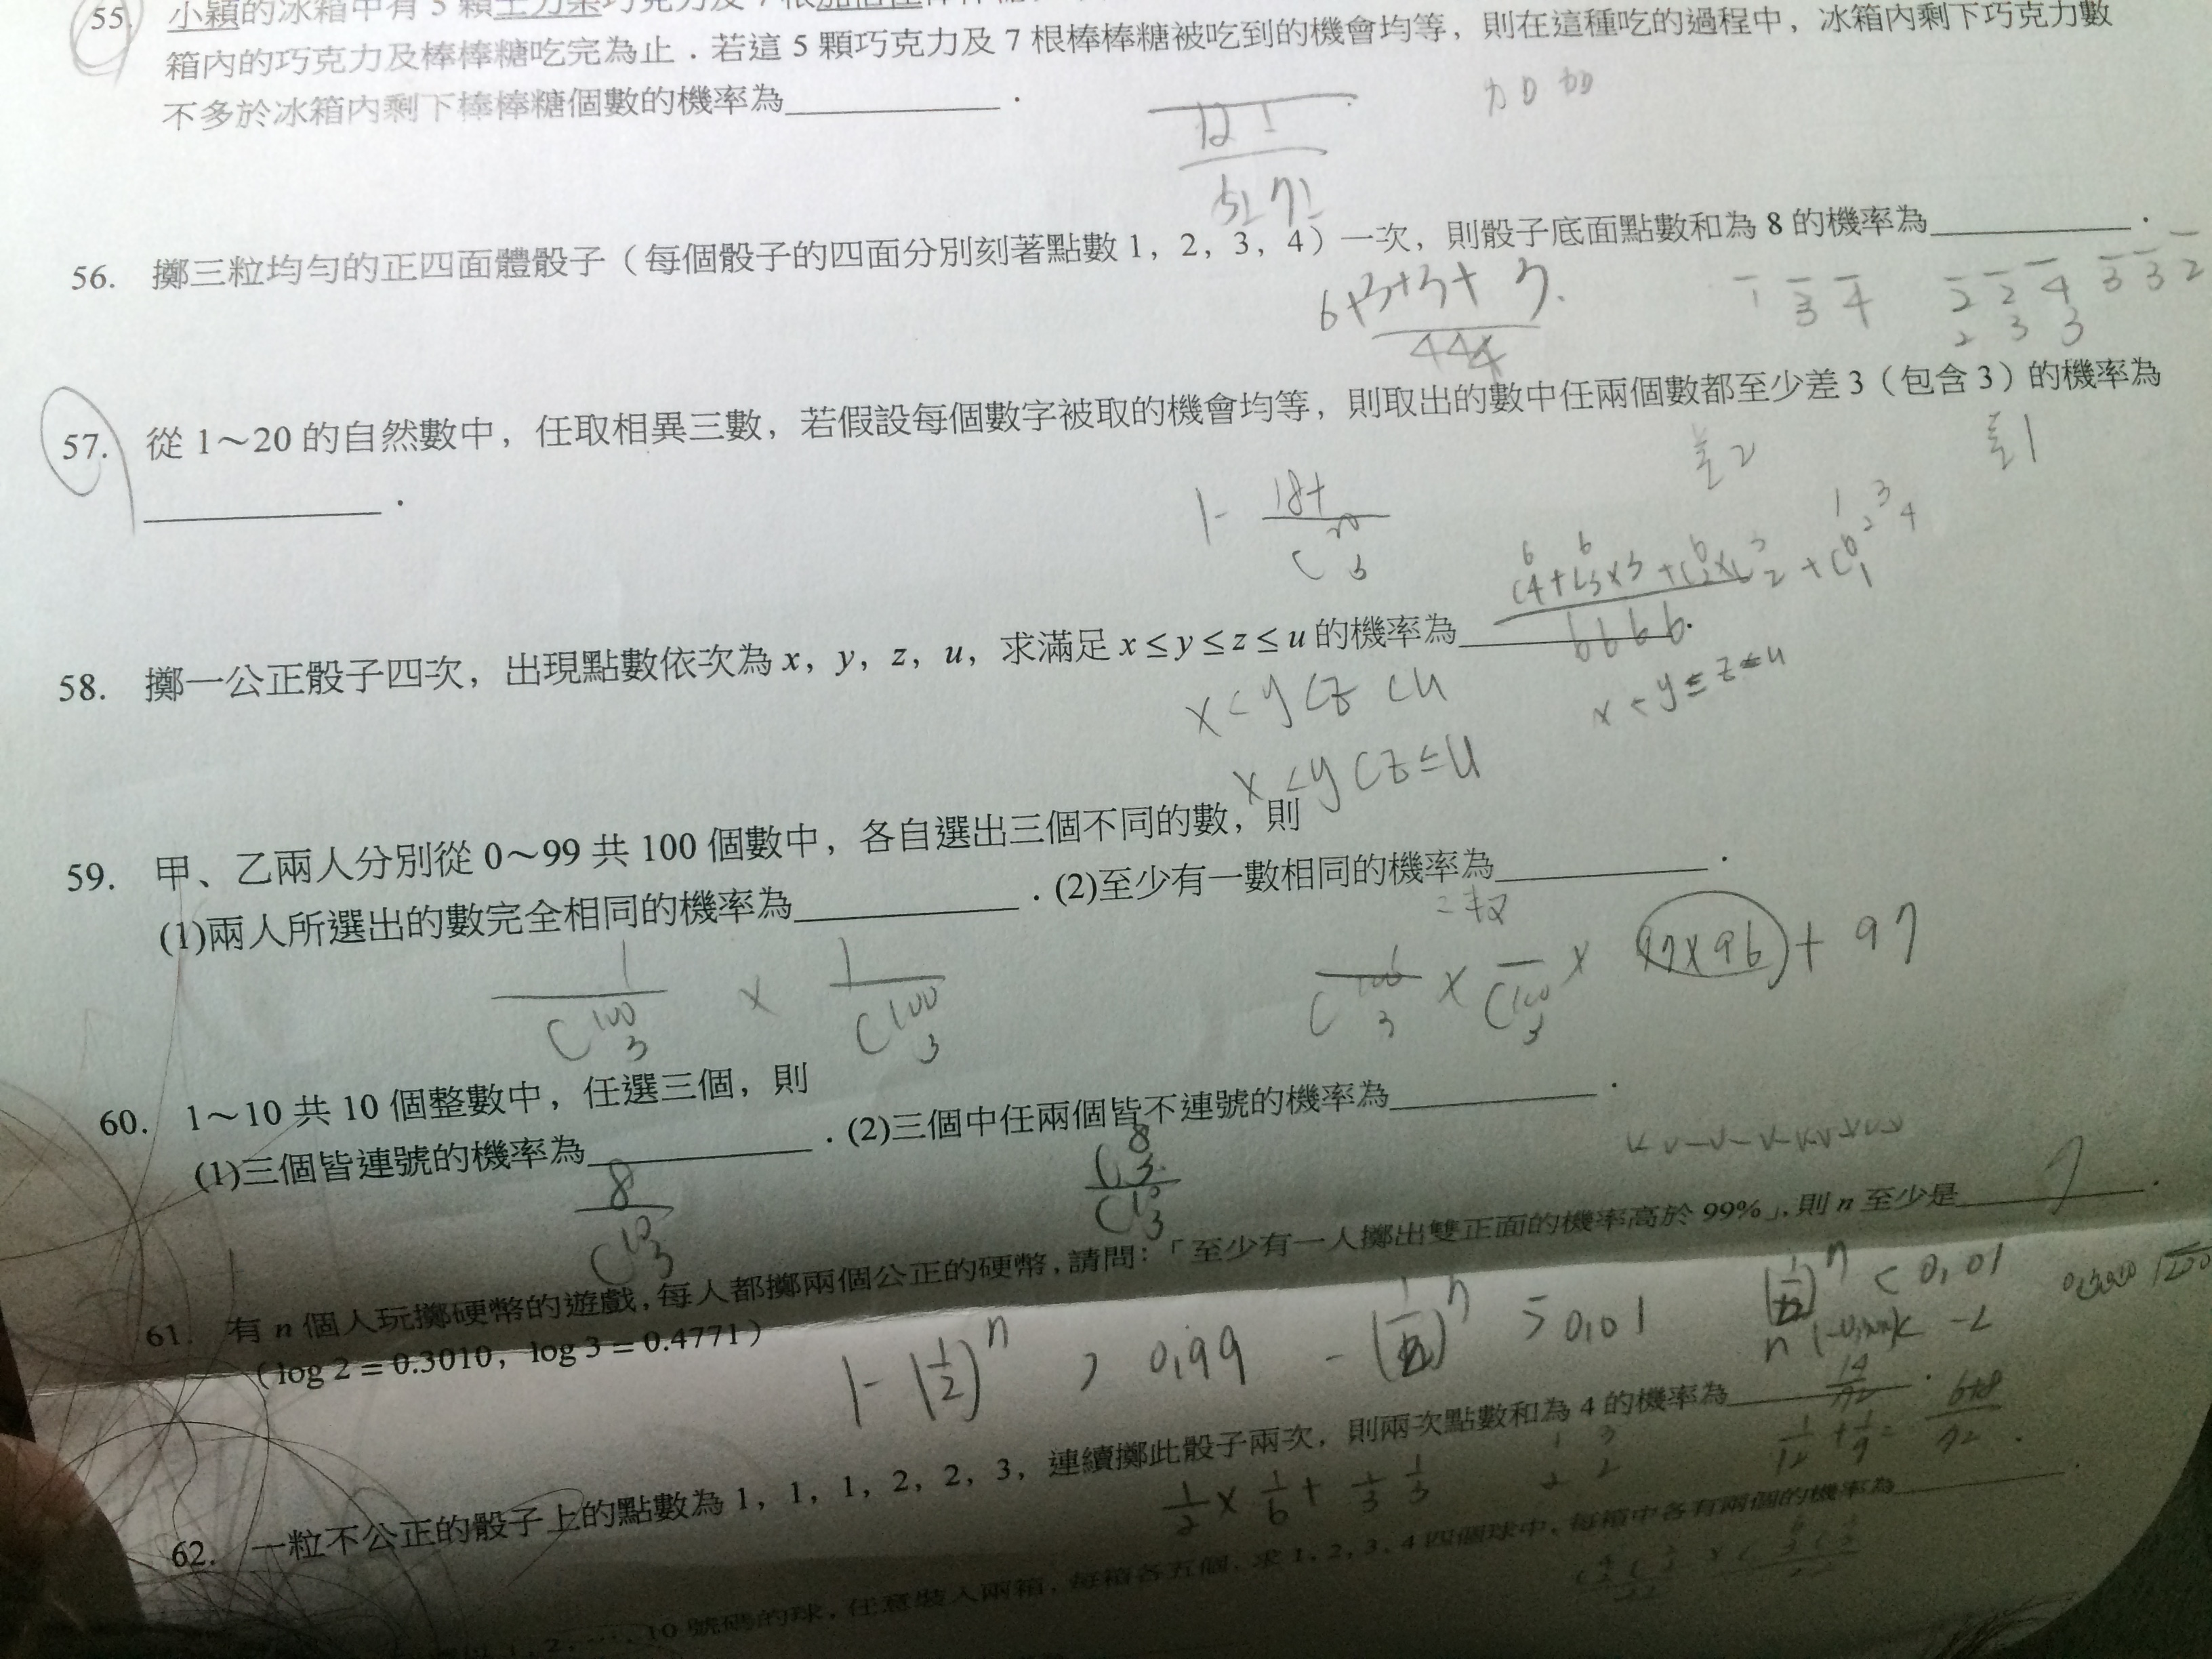 55. 小穎的冰箱中有 5 顆士力架巧克力及 7 根加倍佳
箱內的巧克力及棒棒糖吃完為止．若這 5 顆巧克力及 7 根棒棒糖被吃到的機會均等，則在這種吃的過程中，冰箱內剩下巧克力數
不多於冰箱內剩下棒棒糖個數的機率為__________．
加 加
12!
5! 7!
56. 擲三粒均勻的正四面體骰子（每個骰子的四面分別刻著點數 1，2，3，4）一次，則骰子底面點數和為 8 的機率為__________．
6+3+3+
444
1 3 4
2 2 4
3 3 2
2 3 3
57. 從 1～20 的自然數中，任取相異三數，若假設每個數字被取的機會均等，則取出的數中任兩個數都至少差 3（包含 3）的機率為
__________．
差2
差1
1- 18+
C 20 3
58. 擲一公正骰子四次，出現點數依次為 x，y，z，u，求滿足 x≤y≤z≤u 的機率為__________．
6 6 6 6
x<y<z<u
x<y≤z≤u
x<y<z≤u
59. 甲、乙兩人分別從 0～99 共 100 個數中，各自選出三個不同的數，則
(1)兩人所選出的數完全相同的機率為__________．(2)至少有一數相同的機率為__________．
1 × 1
C 100 3 C 100 3
C 100 3 × C 100 3 × 97×96 + 97
60. 1～10 共 10 個整數中，任選三個，則
(1)三個皆連號的機率為__________．(2)三個中任兩個皆不連號的機率為__________．
8
C 10 3
C 8 3
C 10 3
61. 有 n 個人玩擲硬幣的遊戲，每人都擲兩個公正的硬幣，請問：「至少有一人擲出雙正面的機率高於 99%」，則 n 至少是__________．
7
（log 2＝0.3010，log 3＝0.4771）
1-(1/2)^n > 0.99
< 0.01
62. 一粒不公正的骰子上的點數為 1，1，1，2，2，3，連續擲此骰子兩次，則兩次點數和為 4 的機率為__________．
14
72
1/2 × 1/6 + 1/3 1/3
1/12 + 1/9 = 6+8/72
1，2，…，10 號碼的球，任意裝入兩箱，每箱各五個，求 1，2，3，4 四個球中，每箱中各有兩個的機率為__________．